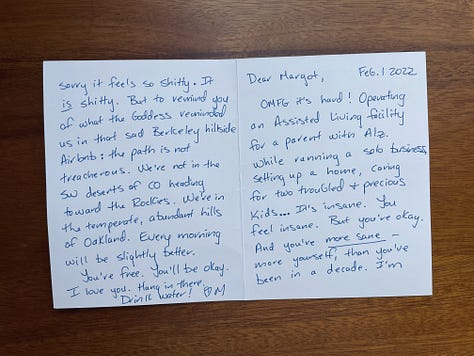 Dear Margot,
Feb. 1 2022
OMFG it's hard! Operating
an Assisted Living facility
for a parent with Alz.
while running a solo business,
selling up a home, caring
for two troubled + precious
kids... It's insane. You
feel insane. But you're okay.
And you're more sane –
more yourself, than you've
been in a decade. I'm
sorry it feels so shitty. It
is shitty. But to remind you
of what the Goddess reminded
us in that sad Berkeley hillside
Airbnb: the path is not
treacherous. We're not in the
SW deserts of CO heading
toward the Rockies. We're in
the temperate, abundant hills
of Oakland. Every morning
will be slightly better.
You're free. You'll be okay.
I love you. Hang in there.
Drink water! ♡M